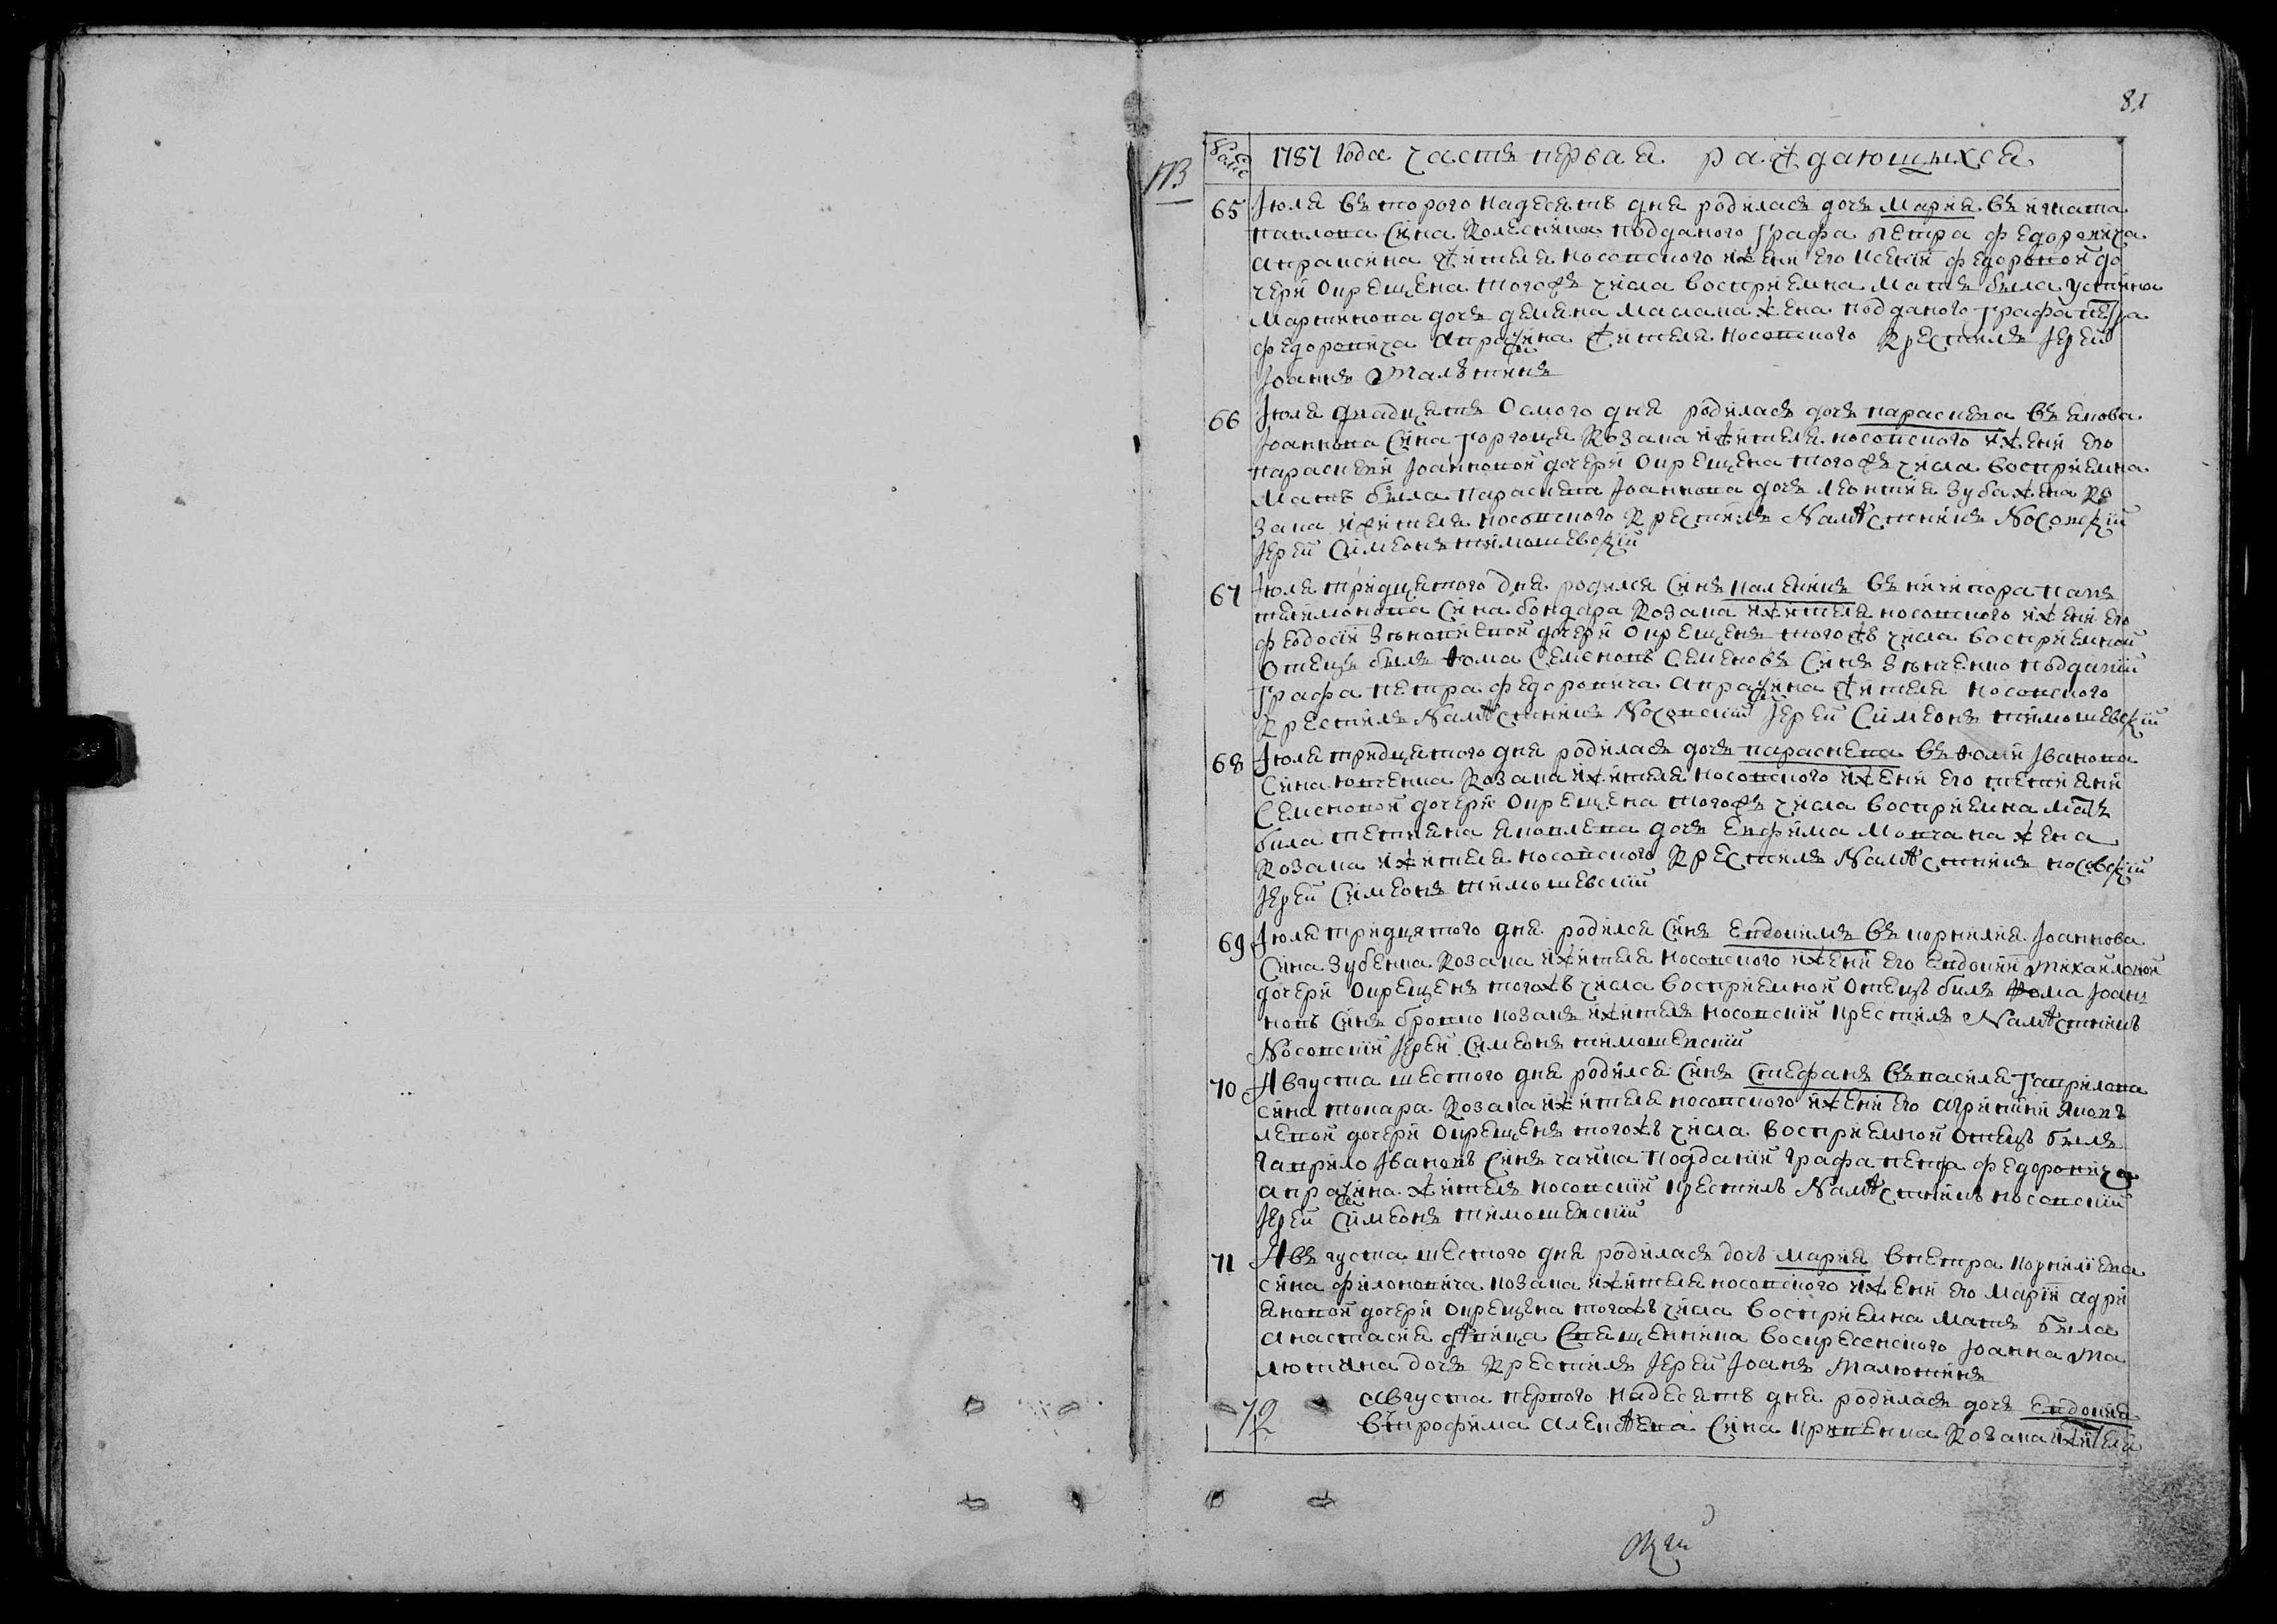 81
173
Число 1787 года часть первая раждающихся
65 Июля второго надесять дня родилась дочь Мария въ игната
павлова сина Колесника подданого Графа Петра Федоровича
Апраксина жителя носовского и жени его Ксении Федоровой до
чери окрещена тогожъ числа восприемна мать била Устина
Мартинова дочь демяна масла жена подданого Графа Петра
Федоровича Апраксина жителя носовского Крестилъ Иерей
Иоаннъ Малютинъ
66 Июля двадцать осмого дня родилась дочь параскева въ якова
Иоаннова сина Горгоца Козака и жителя носовского и жени его
параскеви Иоанновой дочери окрещена тогожъ числа восприемна
мать била параскева Иоаннова дочь леонтия Зуба жена Ко
зака и жителя носовского Крестилъ Намѣстникъ Носовский
Иерей Симеонъ тимошевский
67 Июля тридцатого дня родился синъ калиникъ въ ничипора панъ
телимонова сина бондара Козака и жителя носовского и жени его
феодосии Зѣновиевой дочери окрещенъ тогожъ числа восприемной
отецъ билъ Фома Семеновъ синъ подданий
Графа Петра Федоровича Апраксина жителя носовского
Крестилъ Намѣстникъ Носовский Иерей Симеонъ тимошевский
68 Июля тридцатого дня родилась дочь параскева въ Фоми Иванова
сина юрченка Козака и жителя носовского и жени его тетияни
Семеновой дочери окрещена тогожъ числа восприемна мать
била тетияна яковлева дочь Евфима Мовчана жена
Козака и жителя носовского Крестилъ Намѣстникъ носовский
Иерей Симеонъ тимошевский
69 Июля тридцятого дня родился синъ Евдокимъ въ корнилия Иоаннова
сина Зубенка Козака и жителя носовского и жени его Евдокии Михайловой
дочери окрещенъ тогожъ числа восприемной отецъ билъ Фома Иоан
новъ синъ бровко козакъ и житель носовский крестилъ Намѣстникъ
Носовский Иерей Симеонъ тимошевский
70 Августа шестого дня родился синъ Стефанъ въ василя Гаврилова
сина токара Козака и жителя носовского и жени его агрипини яков
левой дочери окрещенъ тогожъ числа восприемной отецъ билъ
Гаврило Ивановъ синъ чайка подданий Графа Петра Федоровича
Апраксина житель носовский крестилъ Намѣстникъ носовский
Иерей Симеонъ тимошевский
71 Августа шестого дня родилась дочь мария въ петра корнилиева
сина филоновича козака и жителя носовского и жени его марии адри
яновой дочери окрещена тогожъ числа восприемна мать била
анастасия дѣвица Священника воскресенского Иоанна Ма
лютина дочь Крестилъ Иерей Иоаннъ Малютинъ
72 Августа первого надесять дня родилась дочь Евдокия
въ трофима алексѣева сина кривенка Козака и жителя